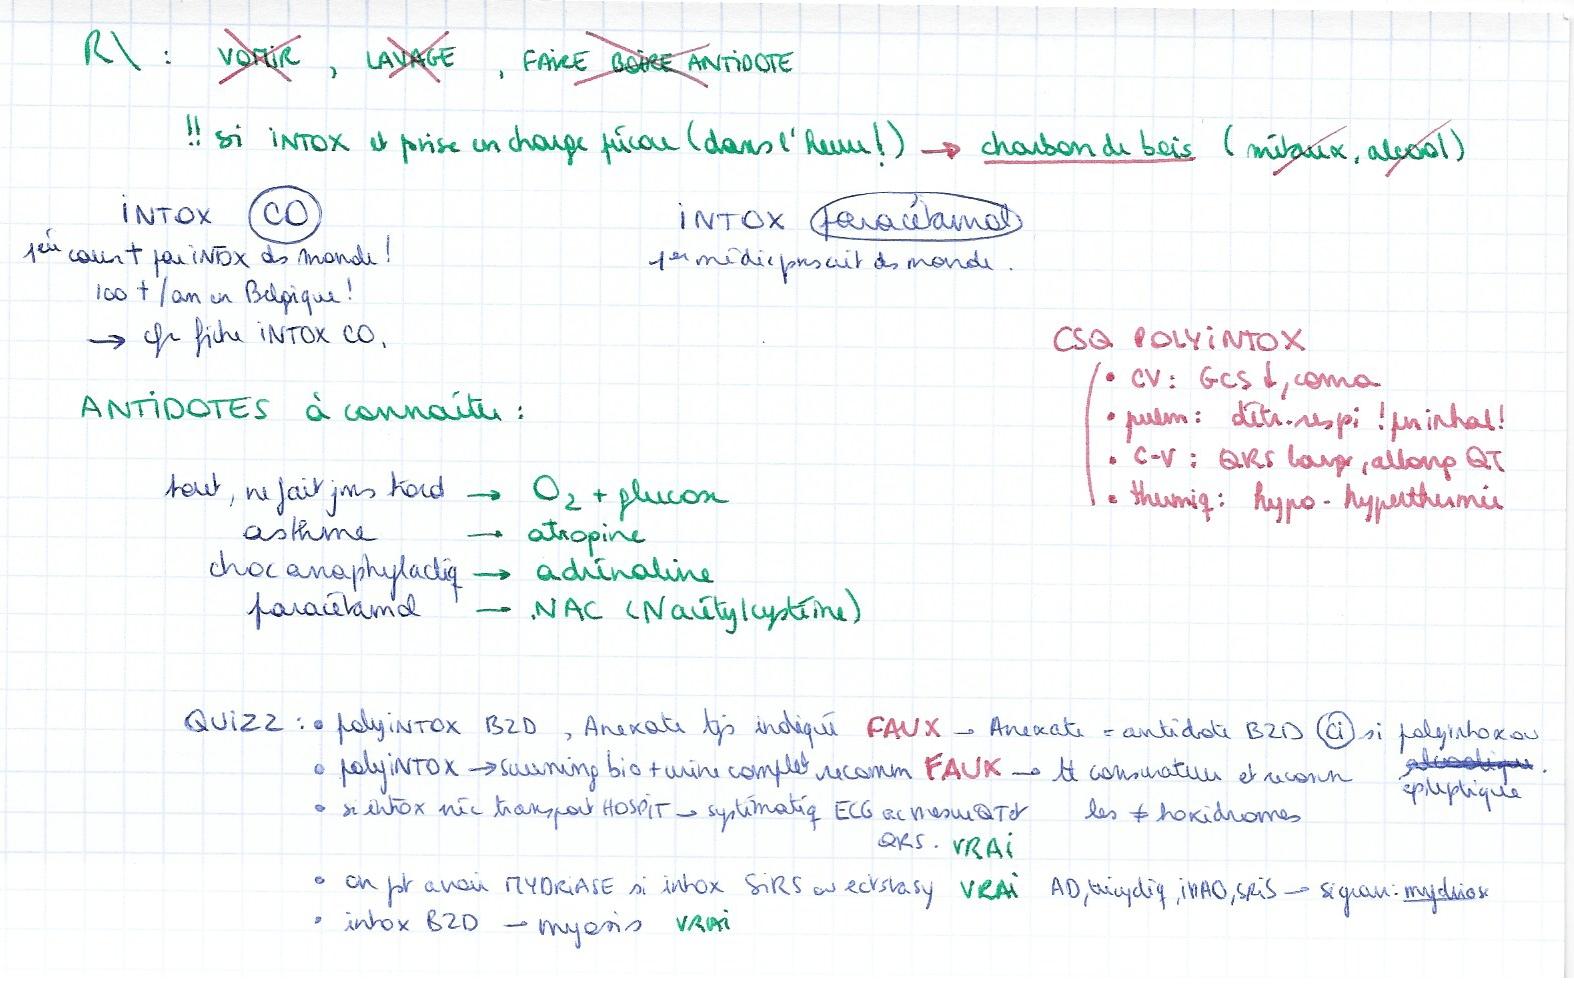 R\ : VOMIR , LAVAGE , FAIRE BOIRE ANTIDOTE
!! si INTOX et prise en charge précoce (dans l'heure!) → charbon de bois (métaux, alcool)
INTOX CO
cour † par INTOX ds monde !
100 † /an en Belgique !
→ cfr fiche INTOX CO.
INTOX paracétamol
1er médic prescrit ds monde.
CSQ POLYINTOX
• CV : GCS ↓, coma
• pulm : détr. respi ! pn inhal !
• C-V : QRS large, allong QT
• thermiq : hypo - hyperthermie
ANTIDOTES à connaître :
tout, ne fait jms tord → O2 + glucose
asthme → atropine
choc anaphylactiq → adrénaline
paracétamol → NAC (N acétylcystéine)
QUIZZ : • polyINTOX BZD , Anexate tjs indiqué FAUX → Anexate = antidote BZD CI si polyintox ou
épileptique
• polyINTOX → screening bio + urine complet recomm FAUX → tt consommateur et reconn
les ≠ toxidromes
• si intox néc transport HOSPIT → systématiq ECG ac mesure QT et
QRS. VRAI
• on pt avoir MYDRIASE si intox SiRS ou ectstasy VRAI AD, tricycliq, iMAO, SRiS → si grav : mydriase
• intox BZD → myosis VRAI